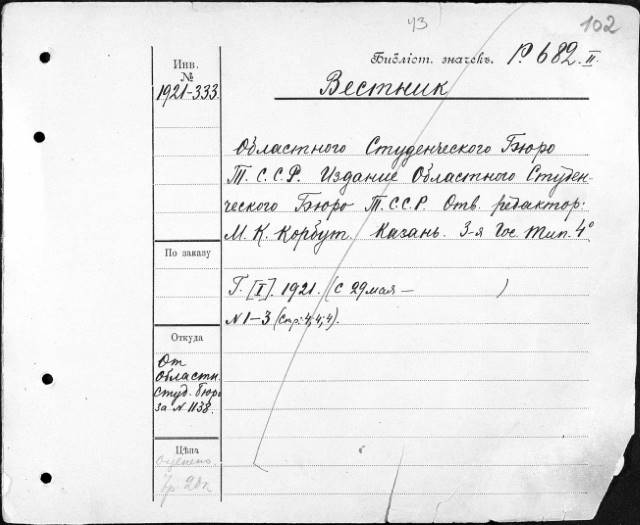 43
102
Инв.
№
1921-333.
Библіот. значекъ. Р 682. II.
Вестник
Областного Студенческого Бюро
Т.С.С.Р. Издание Областного Студен-
ческого Бюро Т.С.С.Р. Отв. редактор:
М. К. Корбут. Казань. 3-я Гос. Тип. 4°
По заказу
Г. [I]. 1921. (с 29 мая — )
N 1-3 (стр: 4; 4; 4).
Откуда
От
Областн.
Студ. бюро
за N 1138.
Цѣна
оценено
20к